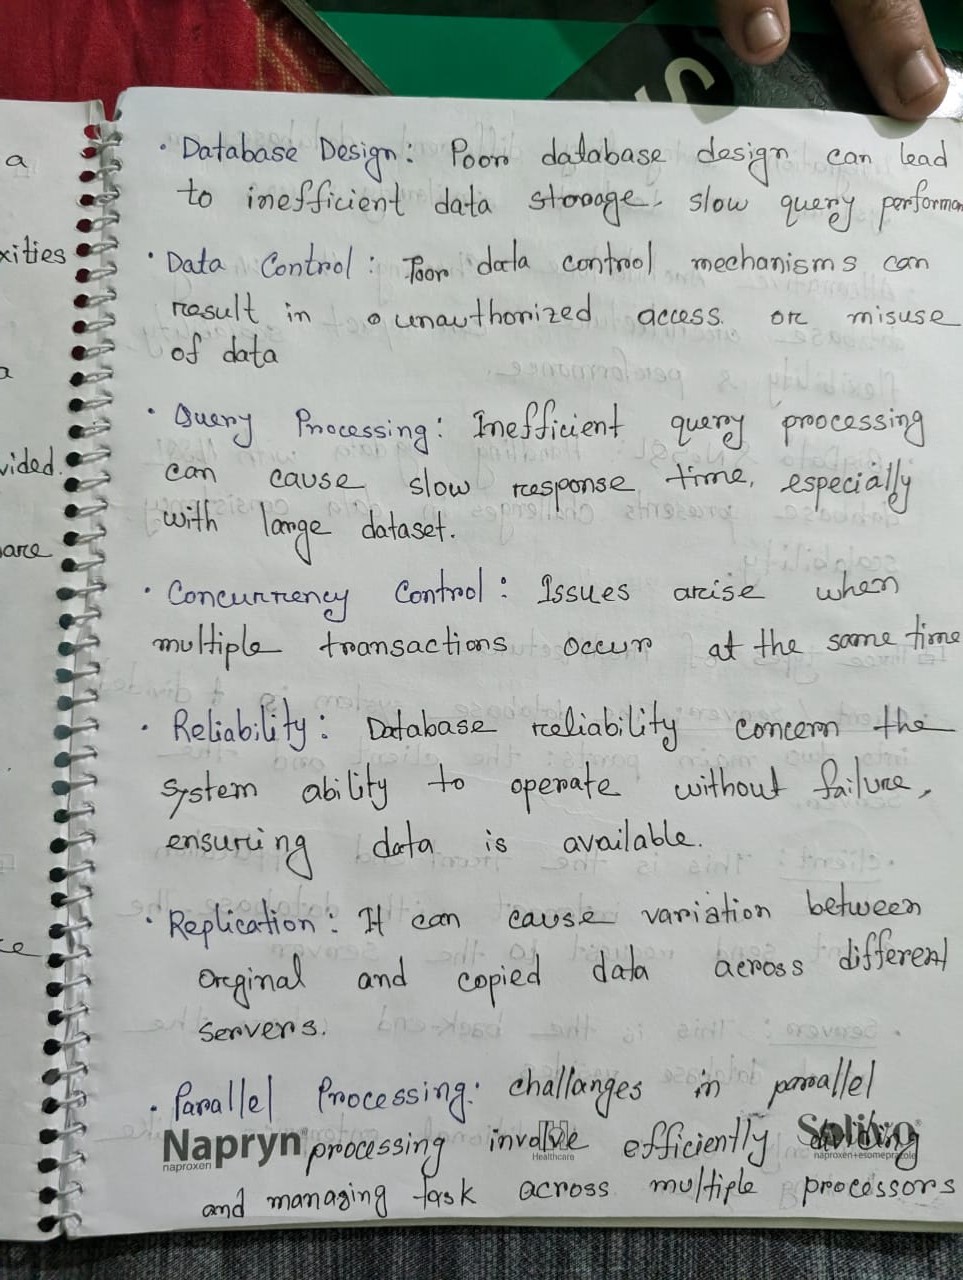 • Database Design: Poor database design can lead
to inefficient data storage, slow query performan
• Data Control: Poor data control mechanisms can
result in unauthorized access or misuse
of data
• Query Processing: Inefficient query processing
can cause slow response time, especially
with large dataset.
• Concurrency Control: Issues arise when
multiple transactions occur at the same time
• Reliability: Database reliability concern the
system ability to operate without failure,
ensuring data is available.
• Replication: It can cause variation between
Orginal and copied data across different
servers.
• Parallel Processing: challanges in parallel
processing involve efficiently dividing
and managing task across multiple processors
Napryn
naproxen
Healthcare
naproxen+esomeprazole
a
xities
a
vided.
are
ce